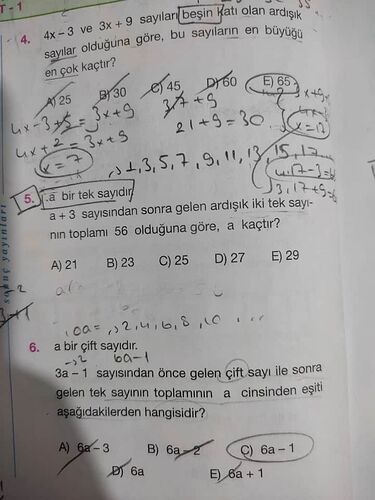 T - 1
4. 4x – 3 ve 3x + 9 sayıları beşin katı olan ardışık
sayılar olduğuna göre, bu sayıların en büyüğü
en çok kaçtır?
A) 25 B) 30 C) 45 D) 60 E) 65
4x-3+5=3x+9
3.7+9
4x+2=3x+9
21+9=30
x=7
1,3,5,7,9,11,13,15,17
5. a bir tek sayıdır.
a + 3 sayısından sonra gelen ardışık iki tek sayı-
nın toplamı 56 olduğuna göre, a kaçtır?
A) 21 B) 23 C) 25 D) 27 E) 29
sonuç yayınları
2,4,6,8,10
6. a bir çift sayıdır.
6a-1
3a – 1 sayısından önce gelen çift sayı ile sonra
gelen tek sayının toplamının a cinsinden eşiti
aşağıdakilerden hangisidir?
A) 6a – 3 B) 6a – 2 C) 6a – 1
D) 6a E) 6a + 1